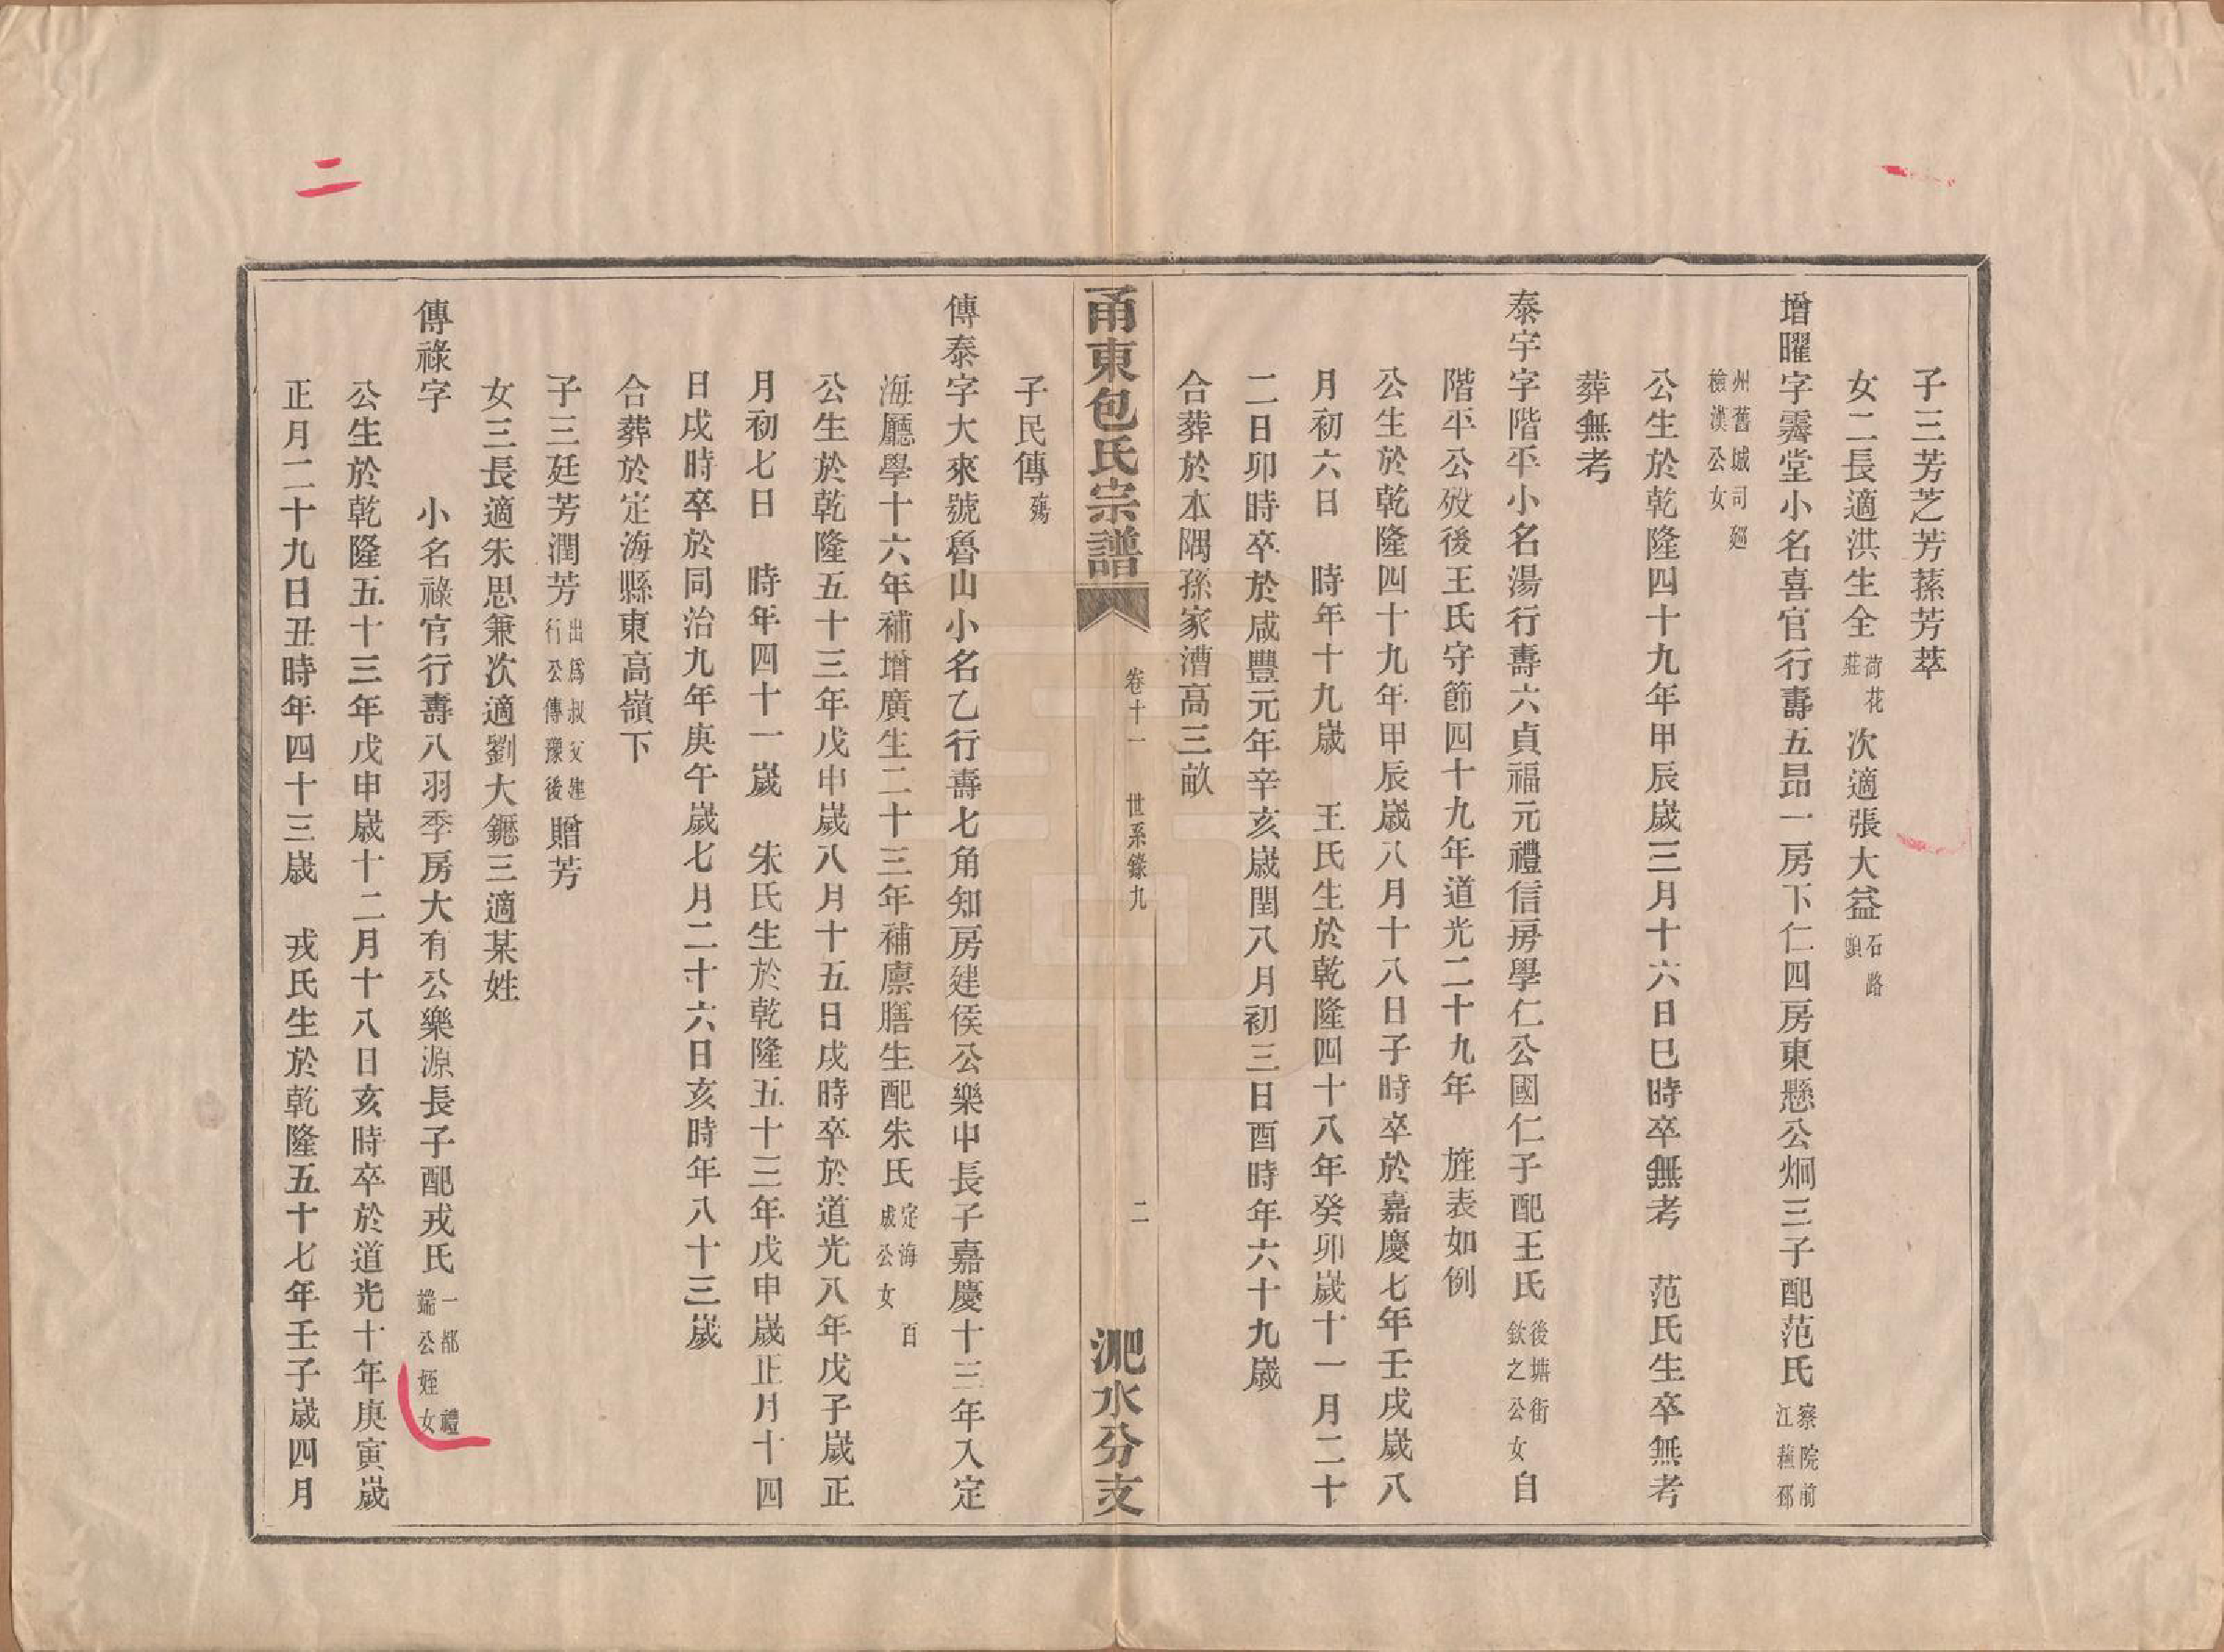 子三芳芝芳蓀芳萃
女二長適洪生全荷花莊次適張大益石路頭
增曜字霽堂小名喜官行壽五昂一房下仁四房東懸公炯三子配范氏察院前江蘇邳
州舊城司廵檢漢公女
公生於乾隆四十九年甲辰歲三月十六日巳時卒無考 范氏生卒無考
葬無考
泰宇字階平小名湯行壽六貞福元禮信房學仁公國仁子配王氏後塘街欽之公女自
階平公歿後王氏守節四十九年道光二十九年 旌表如例
公生於乾隆四十九年甲辰歲八月十八日子時卒於嘉慶七年壬戌歲八
月初六日 時年十九歲 王氏生於乾隆四十八年癸卯歲十一月二十
二日卯時卒於咸豐元年辛亥歲閏八月初三日酉時年六十九歲
合葬於本隅孫家漕高三畝
甬東包氏宗譜 卷十一 世系錄九 二 淝水分支
子民傳殤
傳泰字大來號魯山小名乙行壽七角知房建侯公樂申長子嘉慶十三年入定
海廳學十六年補增廣生二十三年補廩膳生配朱氏定海 百成公女
公生於乾隆五十三年戊申歲八月十五日戌時卒於道光八年戊子歲正
月初七日 時年四十一歲 朱氏生於乾隆五十三年戊申歲正月十四
日戌時卒於同治九年庚午歲七月二十六日亥時年八十三歲
合葬於定海縣東高嶺下
子三廷芳潤芳出爲叔父建行公傳豫後贈芳
女三長適朱思兼次適劉大鏕三適某姓
傳祿字 小名祿官行壽八羽季房大有公樂源長子配戎氏一都 禮端公姪女
公生於乾隆五十三年戊申歲十二月十八日亥時卒於道光十年庚寅歲
正月二十九日丑時年四十三歲 戎氏生於乾隆五十七年壬子歲四月
二